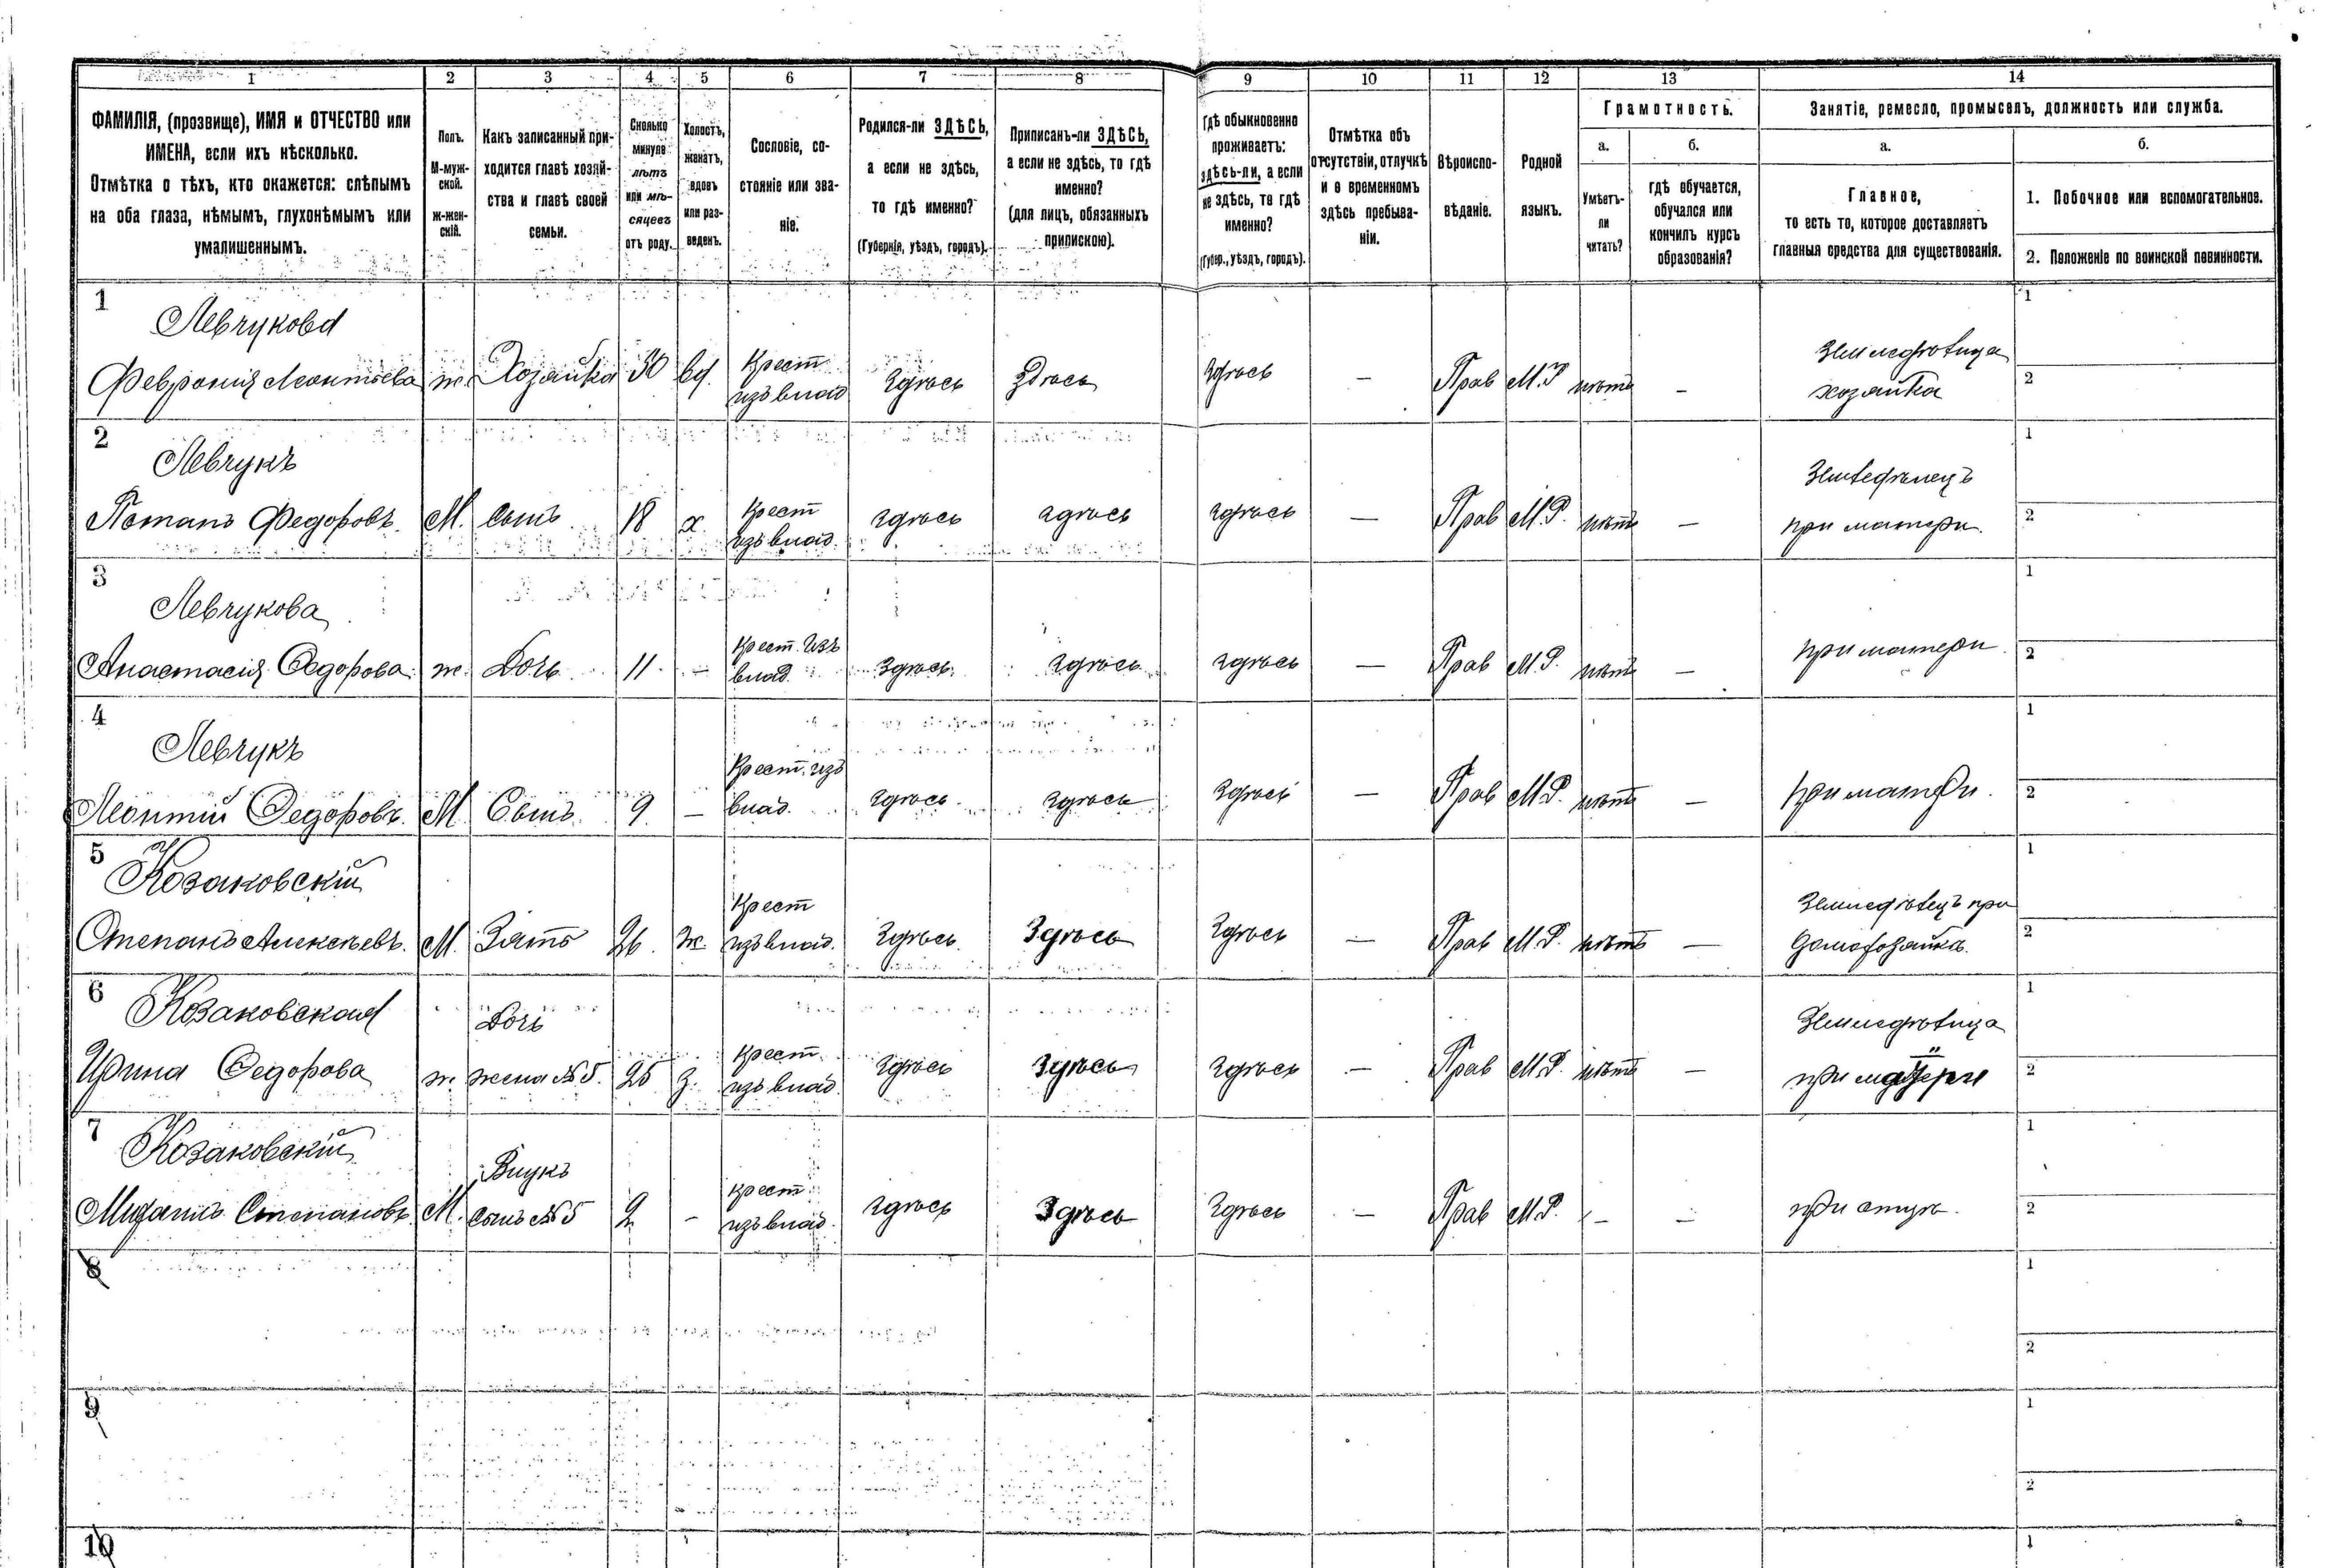 1 2 3 4 5 6 7 8 9 10 11 12 13 14
ФАМИЛІЯ, (прозвище), ИМЯ и ОТЧЕСТВО или
ИМЕНА, если ихъ нѣсколько.
Отмѣтка о тѣхъ, кто окажется: слѣпымъ
на оба глаза, нѣмымъ, глухонѣмымъ или
умалишеннымъ.
Полъ.
М-муж-
ской.
ж-жен-
скій.
Какъ записанный при-
ходится главѣ хозяй-
ства и главѣ своей
семьи.
Сколько
минуло
лѣтъ
или мѣ-
сяцевъ
отъ роду.
Холостъ,
женатъ,
вдовъ
или раз-
веденъ.
Сословіе, со-
стояніе или зва-
ніе.
Родился-ли ЗДѢСЬ,
а если не здѣсь,
то гдѣ именно?
(Губернія, уѣздъ, городъ).
Приписанъ-ли ЗДѢСЬ,
а если не здѣсь, то гдѣ
именно?
(для лицъ, обязанныхъ
припискою).
Гдѣ обыкновенно
проживаетъ:
здѣсь-ли, а если
не здѣсь, то гдѣ
именно?
(Губер., уѣздъ, городъ).
Отмѣтка объ
отсутствіи, отлучкѣ
и о временномъ
здѣсь пребыва-
ніи.
Вѣроиспо-
вѣданіе.
Родной
языкъ.
Грамотность.
а.
Умѣетъ-
ли
читать?
б.
гдѣ обучается,
обучался или
кончилъ курсъ
образованія?
Занятіе, ремесло, промыселъ, должность или служба.
а.
Главное,
то есть то, которое доставляетъ
главныя средства для существованія.
б.
1. Побочное или вспомогательное.
2. Положеніе по воинской повинности.
1
Левчукова
Феврония Леонтьева ж. Хозяйка 50 вд. Крест изъ влад Здѣсь Здѣсь Здѣсь — Прав М.Р нѣтъ —
Земледѣлица
хозяйка
1
2
2
Левчукъ
Потапъ Федоровъ. М. сынъ 18 х. Крест изъ влад. здѣсь здѣсь здѣсь — Прав М.Р. нѣтъ —
Земледѣлецъ
при матери.
1
2
3
Левчукова
Анастасія Федорова. ж. Дочь 11. — Крест. изъ влад. Здѣсь. здѣсь здѣсь — Прав М.Р. нѣтъ —
при матери.
1
2
4
Левчукъ
Леонтій Федоровъ. М. Сынъ. 9. — Крест. изъ влад. здѣсь. здѣсь здѣсь — Прав М.Р. нѣтъ —
при матери.
1
2
5
Козаковскій
Степанъ Алексѣевъ. М. Зять 26. ж. Крест изъ влад. Здѣсь. Здѣсь Здѣсь — Прав М.Р. нѣтъ —
Земледѣлецъ при
домохозяйкѣ.
1
2
6
Козаковская
Дочь
Ирина Федорова ж. жена №5. 25 з. Крест. изъ влад. Здѣсь Здѣсь Здѣсь — Прав М.Р. нѣтъ —
Земледѣлица
при матери
1
2
7
Козаковскій
Внукъ
Степановъ. М. сынъ №5 2 — крест. изъ влад. здѣсь Здѣсь Здѣсь — Прав М.Р. — —
при отцѣ.
1
2
8
1
2
9
1
2
10
1